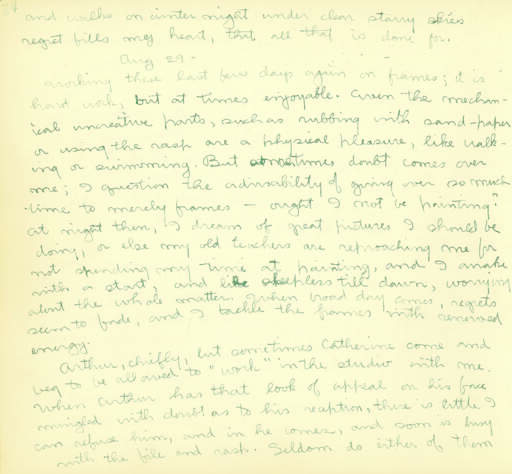 and walks on winter night under clear starry skies
regret fills my heart, that all that is done for.
Aug 29 -
working these last few days again on frames; it is
hard work, but at times enjoyable. Even the mechan-
ical uncreative parts, such as rubbing with sand-paper
or using the rasp are a physical pleasure, like walk-
ing or swimming. But sometimes doubt comes over
me; I question the advisability of giving over so much
time to merely frames – ought I not be painting?
at night then, I dream of great pictures I should be
doing, or else my old teachers are reproaching me for
not spending my time at painting, and I awake
with a start, and lie sleepless till dawn, worrying
about the whole matter. When broad day comes, regrets
seem to fade, and I tackle the frames with renewed
energy.
Arthur, chiefly, but sometimes Catherine come and
beg to be allowed to "work" in the studio with me.
When Arthur has that look of appeal on his face
mingled with doubt as to his reception, there is little I
can refuse him, and in he comes, and soon is busy
with the file and rasp. Seldom do either of them